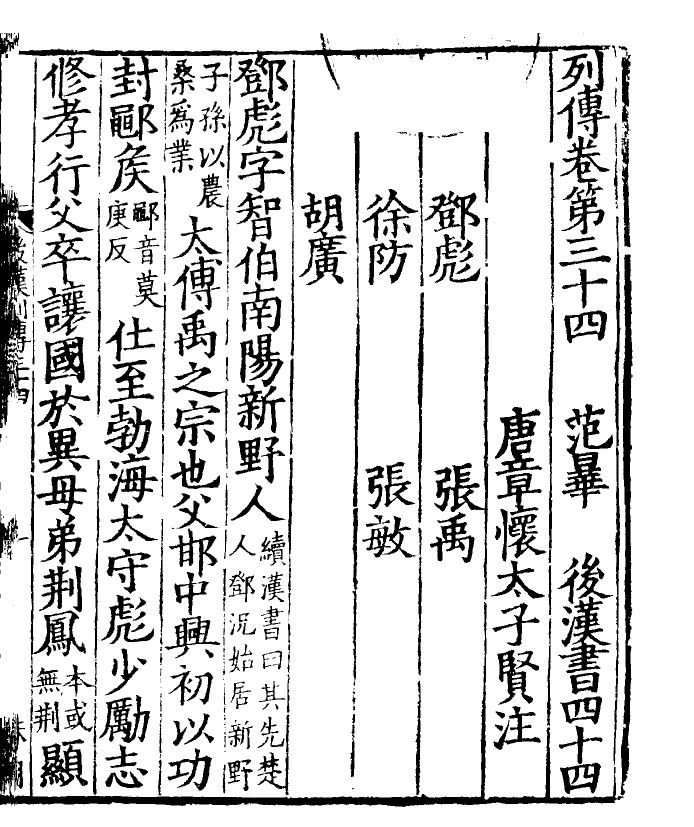 列傳卷第三十四 范曄 後漢書四十四
唐章懷太子賢注
鄧彪 張禹
徐防 張敏
胡廣
鄧彪字智伯南陽新野人續漢書曰其先楚人鄧況始居新野
子孫以農桑爲業太傅禹之宗也父邯中興初以功
封鄳矦鄳音莫庚反仕至勃海太守彪少勵志
修孝行父卒讓國於異母弟荆鳳本或無荆顯